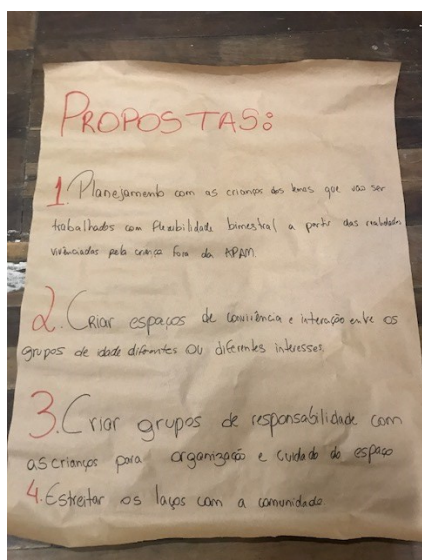 PROPOSTAS:
1. Planejamento com as crianças dos temas que vão ser
trabalhados com flexibilidade bimestral a partir das realidades
vivenciadas pela criança fora da APAM.
2. Criar espaços de convivência e interação entre os
grupos de idade diferentes OU diferentes interesses.
3. Criar grupos de responsabilidade com
as crianças para organização e cuidado do espaço
4. Estreitar os laços com a comunidade.